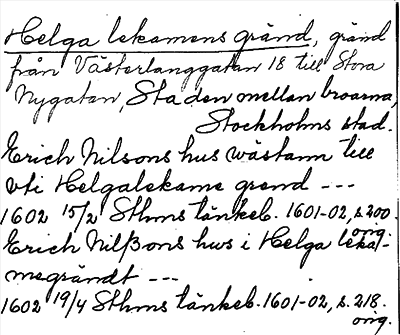 Helga lekamens gränd, gränd
från Västerlanggatan 18 till Stora
Nygatan, Staden mellan broarna,
Stockholms stad.
Erich Nilsons hus wästann till
vti Helgalekame grend ---
1602 15/2 Sthms tänkeb. 1601-02, s. 200.
orig.
Erich Nilßons hus i Helga leka-
megrändt ---
1602 19/4 Sthms tänkeb. 1601-02, s. 218.
orig.